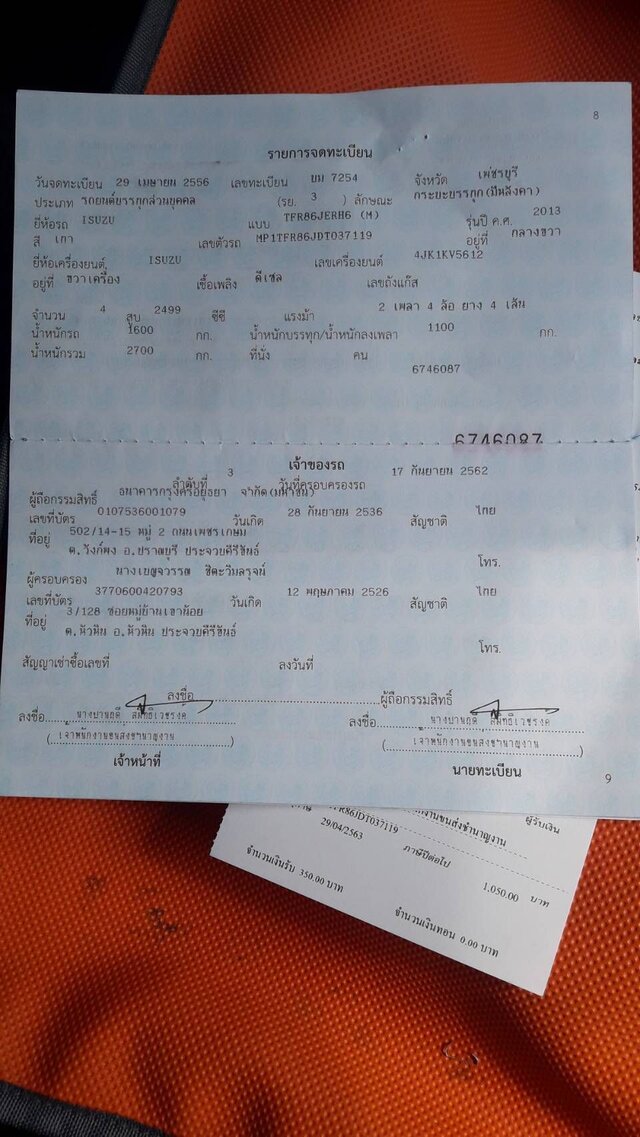 8
รายการจดทะเบียน
วันจดทะเบียน 29 เมษายน 2556 เลขทะเบียน บม 7254 จังหวัด เพชรบุรี
ประเภท รถยนต์บรรทุกส่วนบุคคล (รย. 3 ) ลักษณะ กระบะบรรทุก(มีหลังคา)
ยี่ห้อรถ ISUZU แบบ TFR86JERH6 (M) รุ่นปี ค.ศ. 2013
สี เทา เลขตัวรถ MP1TFR86JDT037119 อยู่ที่ กลางขวา
ยี่ห้อเครื่องยนต์ ISUZU เลขเครื่องยนต์ 4JK1KV5612
อยู่ที่ ขวาเครื่อง เชื้อเพลิง ดีเซล เลขถังแก๊ส
จำนวน 4 สูบ 2499 ซีซี แรงม้า 2 เพลา 4 ล้อ ยาง 4 เส้น
น้ำหนักรถ 1600 กก. น้ำหนักบรรทุก/น้ำหนักลงเพลา 1100 กก.
น้ำหนักรวม 2700 กก. ที่นั่ง คน
6746087
6746087
เจ้าของรถ
ลำดับที่ 3 วันที่ครอบครองรถ 17 กันยายน 2562
ผู้ถือกรรมสิทธิ์ ธนาคารกรุงศรีอยุธยา จำกัด(มหาชน)
เลขที่บัตร 0107536001079 วันเกิด 28 กันยายน 2536 สัญชาติ ไทย
ที่อยู่ 502/14-15 หมู่ 2 ถนนเพชรเกษม
ต.วังก์พง อ.ปราณบุรี ประจวบคีรีขันธ์ โทร.
ผู้ครอบครอง นางเบญจวรรณ
เลขที่บัตร 3770600420793 วันเกิด 12 พฤษภาคม 2526 สัญชาติ ไทย
ที่อยู่ 3/128 ซอยหมู่บ้านเขาน้อย
ต.หัวหิน อ.หัวหิน ประจวบคีรีขันธ์ โทร.
สัญญาเช่าซื้อเลขที่ ลงวันที่
ลงชื่อ ผู้ถือกรรมสิทธิ์
ลงชื่อ ลงชื่อ
(เจ้าพนักงานขนส่งชำนาญงาน) (เจ้าพนักงานขนส่งชำนาญงาน)
เจ้าหน้าที่ นายทะเบียน
9
ผู้รับเงิน
งานขนส่งชำนาญงาน
FR86JDT037119
29/04/2563 ภาษีปีต่อไป 1,050.00 บาท
จำนวนเงินรับ 350.00 บาท จำนวนเงินทอน 0.00 บาท